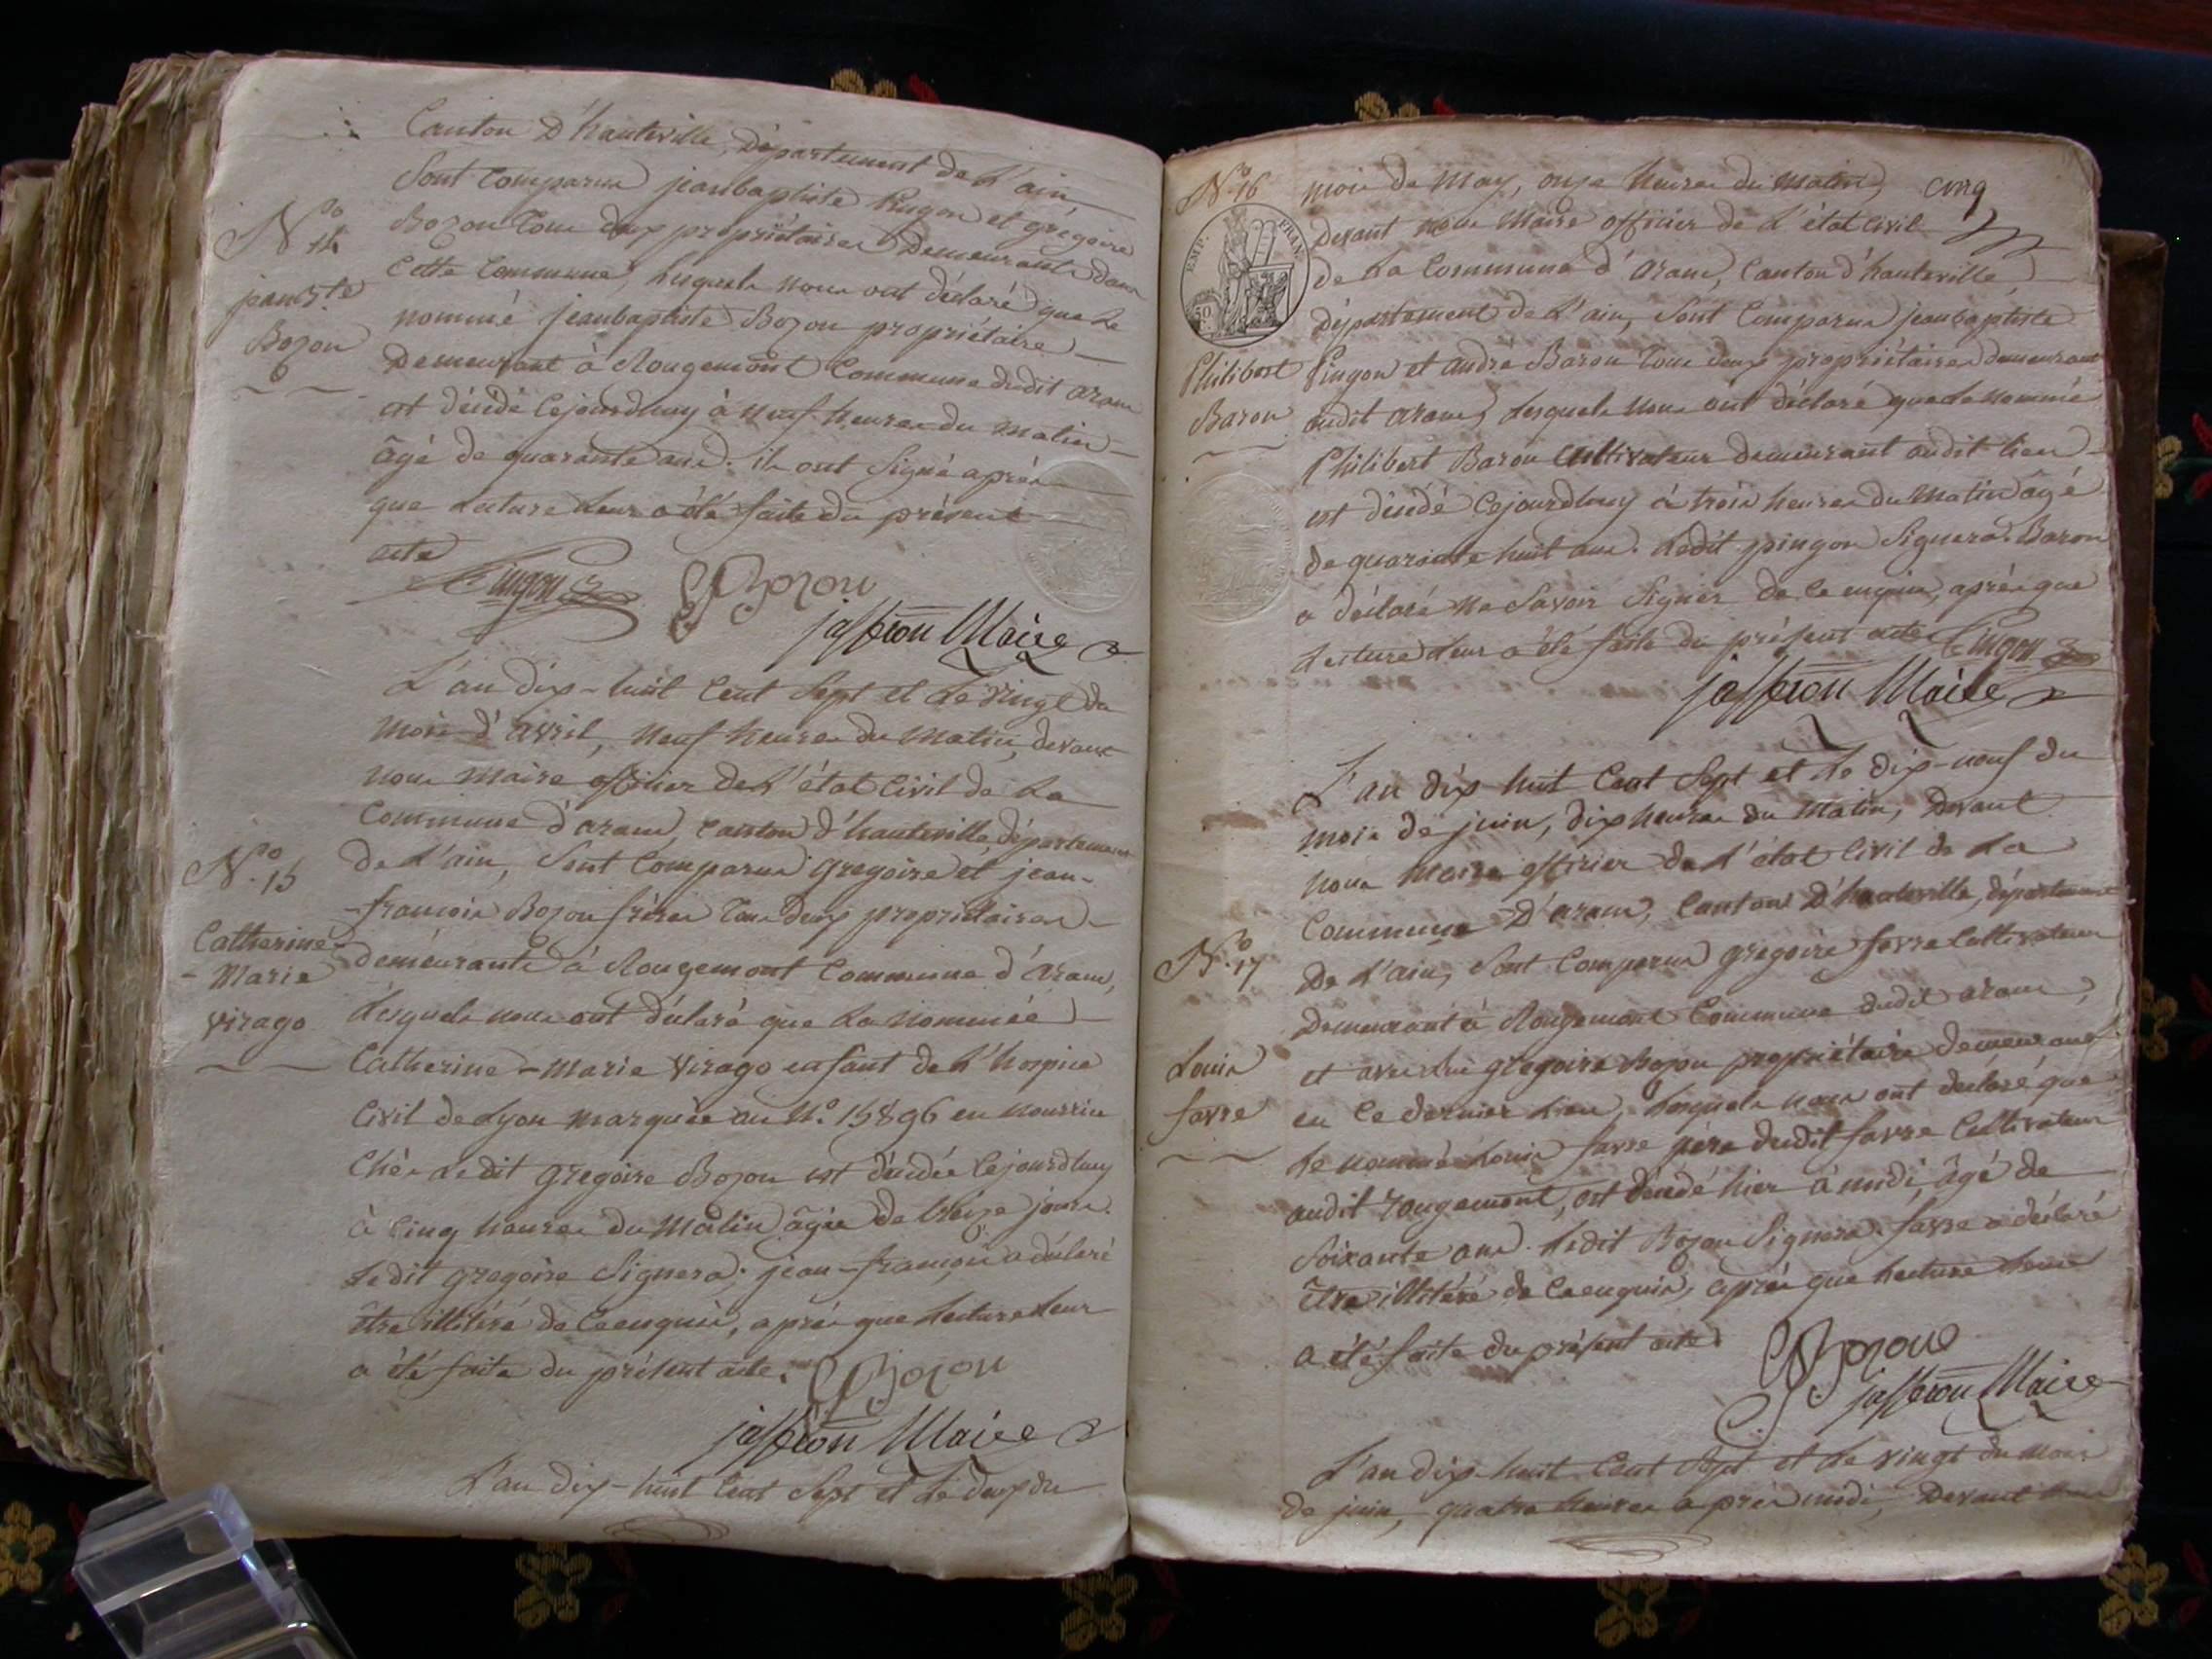 Canton D'hauteville, Département de L'ain
Sont Comparus jeanbaptiste et grégoire
Bozon tous deux propriétaires Demeurants dans
Cette Commune, Lesquels nous ont déclaré que Le
nommé jeanbaptiste Bozon propriétaire
Demeurant à Rougemont Commune dudit aranc
est décédé Cejourdhuy à neuf heures du matin
âgé de quarante ans. ils ont Signé après
que Lecture Leur a été faite du présent
acte
Pingon GBozon
jafferon Maire
N.o 14
jean Bte
Bozon
L'an dix-huit Cent Sept et Le vingt du
mois d'avril, neuf heures du matin, devant
nous maire officier de L'état Civil de La
Commune d'aranc, Canton d'hauteville, département
de L'ain, Sont Comparus gregoire et jean-
-françois Bozon frères tous deux propriétaires
demeurants à Rougemont Commune d'aranc,
Lesquels nous ont déclaré que La nommée
Catherine-marie Virago enfant de L'hospice
Civil de Lyon marquée au N.o 15896 en nourrice
Chés Ledit gregoire Bozon est décédée Cejourdhuy
à Cinq heures du matin âgée de treize jours.
Ledit gregoire Signera; jean-françois a déclaré
être illitéré de Ce enquis, après que Lecture Leur
a été faite du présent acte.
GBozon
jafferon Maire
N.o 15
Catherine-
-Marie
Virago
L'an dix-huit Cent Sept et Le deux du
N.o 16
mois de may, onze heures du matin, cinq
EMP. FRAN.
50
Devant nous Maire officier de L'état Civil
de La Commune d'aranc, Canton d'hauteville,
département de L'ain, Sont Comparus jeanbaptiste
Pingon et andré Baron tous deux propriétaires demeurant
audit aranc, Lesquels nous ont déclaré que Le nommé
Philibert Baron Cultivateur demeurant audit lieu
est décédé Cejourdhuy à trois heures du matin âgé
de quarante huit ans. Ledit pingon Signera. Baron
a déclaré ne Savoir Signer de Ce enquis, après que
Lecture Leur a été faite du présent acte. Pingon
jafferon Maire
Philibert
Baron
L'an dix huit Cent Sept et Le dix-neuf du
mois de juin, dix heures du matin, Devant
nous maire officier de L'état Civil de La
Commune D'aranc, Canton D'hauteville, département
De L'ain, Sont Comparus gregoire favre Cultivateur
Demeurant à Rougemont Commune dudit aranc,
et avec Lui gregoire Bozon propriétaire demeurant
en Ce dernier Lieu, Lesquels nous ont déclaré que
Le nommé Louis favre père dudit favre Cultivateur
audit rougemont, est décédé hier à midi, âgé de
Soixante ans. Ledit Bozon Signera. favre a déclaré
être illitéré de Ce enquis, après que Lecture Leur
a été faite du présent acte.
GBozon
jafferon Maire
N.o 17
Louis
favre
L'an dix-huit Cent Sept et Le vingt du mois
de juin, quatre heures après midi, Devant nous